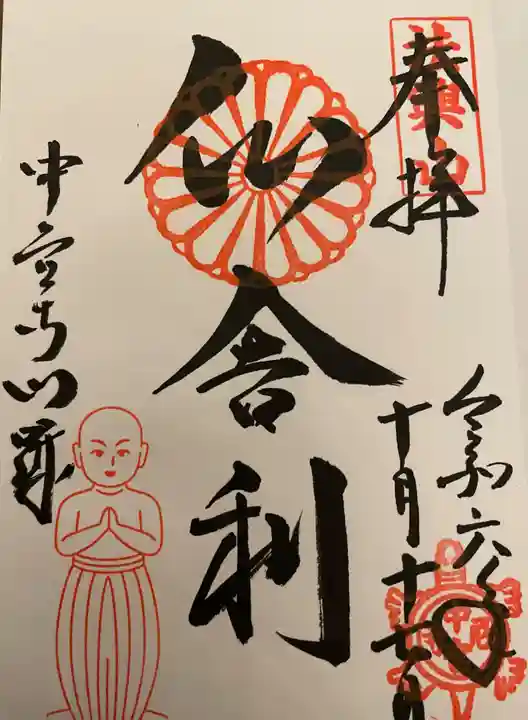 法興山
奉拝
令和六年
十月十七日
仏舎利
中宮寺門跡